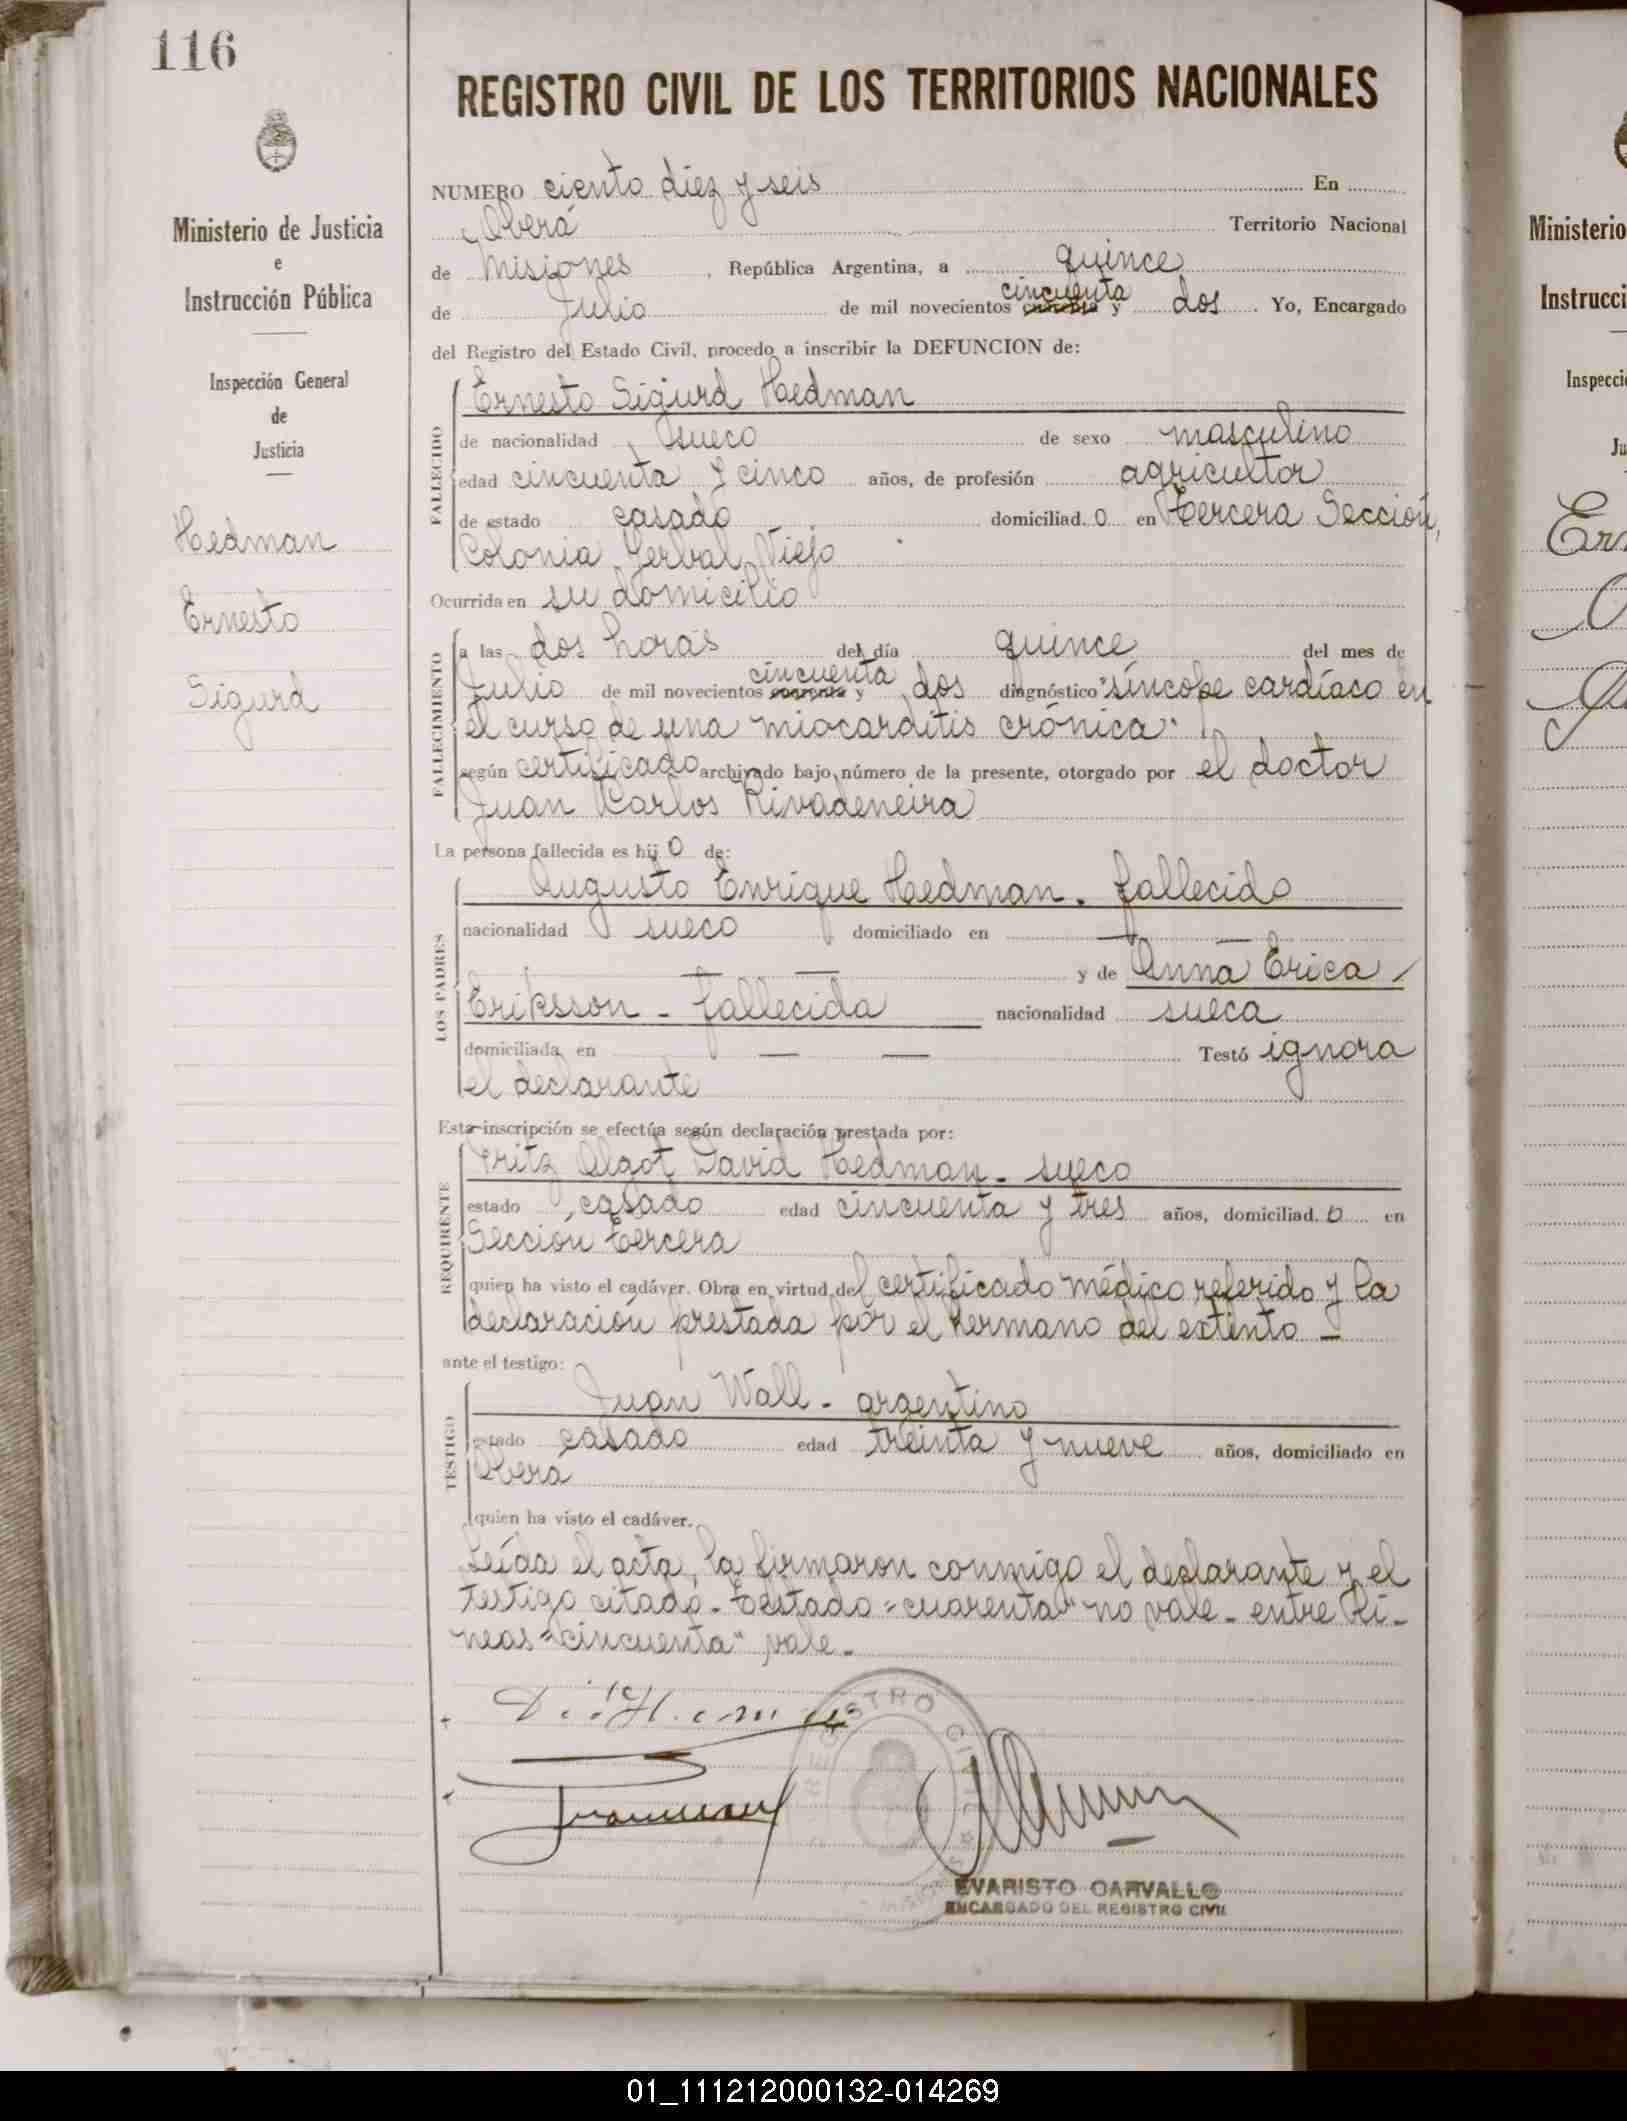 116
REGISTRO CIVIL DE LOS TERRITORIOS NACIONALES
Ministerio de Justicia
e
Instrucción Pública
Inspección General
de
Justicia
Hedman
Ernesto
Sigurd
NUMERO ciento diez y seis En
Oberá Territorio Nacional
de Misiones, República Argentina, a quince
de Julio de mil novecientos cuarenta y cincuenta dos. Yo, Encargado
del Registro del Estado Civil, procedo a inscribir la DEFUNCION de:
FALLECIDO
Ernesto Sigurd Hedman
de nacionalidad sueco de sexo masculino
edad cincuenta y cinco años, de profesión agricultor
de estado casado domiciliad.o en tercera Sección,
Colonia Yerbal Viejo
Ocurrida en su domicilio
FALLECIMIENTO
a las dos horas del día quince del mes de
Julio de mil novecientos cuarenta y cincuenta dos diagnóstico "síncope cardíaco en
el curso de una miocarditis crónica"
según certificado archivado bajo número de la presente, otorgado por el doctor
Juan Carlos Rivadeneira
La persona fallecida es hij o de:
LOS PADRES
Augusto Enrique Hedman. fallecido
nacionalidad sueco domiciliado en —
— — y de Anna Erica
Eriksson - fallecida nacionalidad sueca
domiciliada en — — Testó ignora
el declarante
Esta inscripción se efectúa según declaración prestada por:
REQUIRENTE
Fritz Algot David Hedman - sueco
estado casado edad cincuenta y tres años, domiciliad.o en
Sección tercera
quien ha visto el cadáver. Obra en virtud del certificado médico referido y la
declaración prestada por el hermano del extinto -
ante el testigo:
TESTIGO
Juan Wall - argentino
estado casado edad treinta y nueve años, domiciliado en
Oberá
quien ha visto el cadáver.
Leída el acta, la firmaron conmigo el declarante y el
testigo citado. Testado "cuarenta" no vale - entre lí-
neas "cincuenta" vale.
REGISTRO CIVIL
EVARISTO CARVALLO
ENCARGADO DEL REGISTRO CIVIL
Ministerio
Instrucci
Inspecci
Ju
01_111212000132-014269